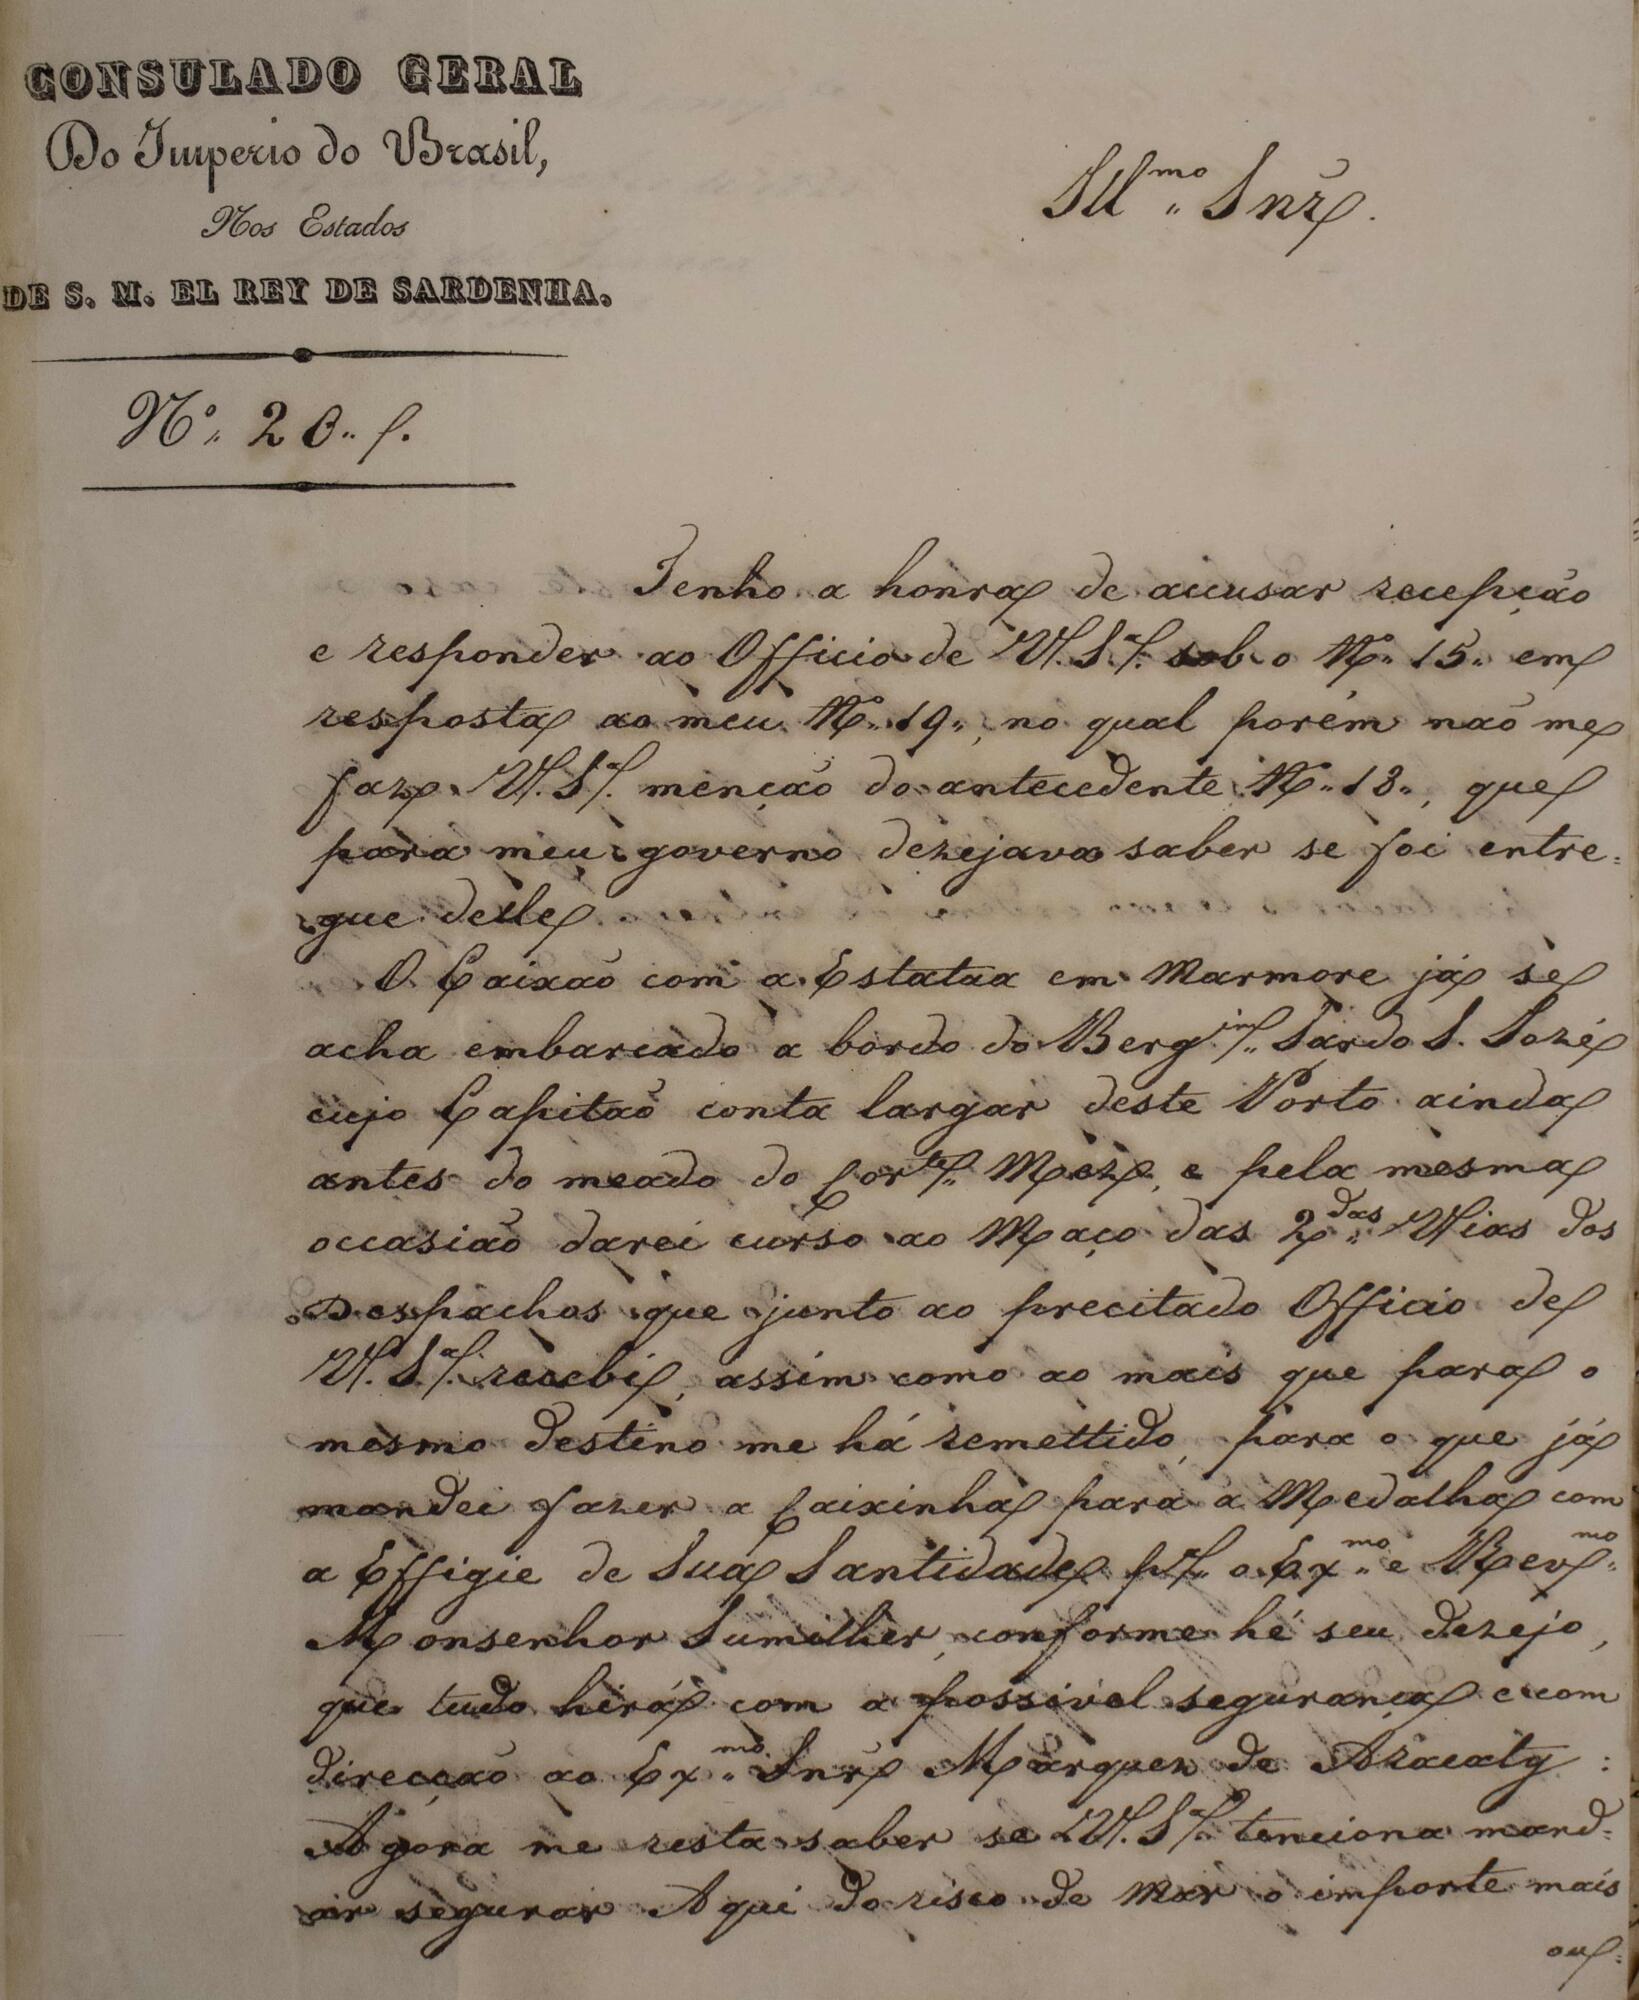 CONSULADO GERAL
Do Imperio do Brasil,
Nos Estados
DE S. M. EL REY DE SARDENHA.
Ill.mo Snr.
N.o 20.
Tenho a honra de accusar recepção
e responder ao Officio de V. S.a sob o N.o 15. em
resposta ao meu N.o 19., no qual porém não me
faz V. S.a menção do antecedente N.o 18., que
para meu governo dezejava saber se foi entre=
gue delle.
O Caixão com a Estatua em Marmore já se
acha embarcado a bordo do Berg.im Sardo S. Jozé
cujo Capitão conta largar deste Porto ainda
antes do meado do Cor.te Mez, e pela mesma
occasião darei curso ao Maço das 2.das Vias dos
Despachos que junto ao precitado Officio de
V. S.a recebi, assim como ao mais que para o
mesmo destino me há remettido, para o que já
mandei fazer a Caixinha para a Medalha com
a Effigie de Sua Santidade p.a o Ex.mo e Rev.mo
Monsenhor Sumilher, conforme hé seu dezejo,
que tudo hirá com a possivel segurança e com
direcção ao Ex.mo Snr. Marquez de Aracaty:
Agora me resta saber se V. S.a tenciona mand=
ar segurar Aqui do risco de Mar o importe mais
ou